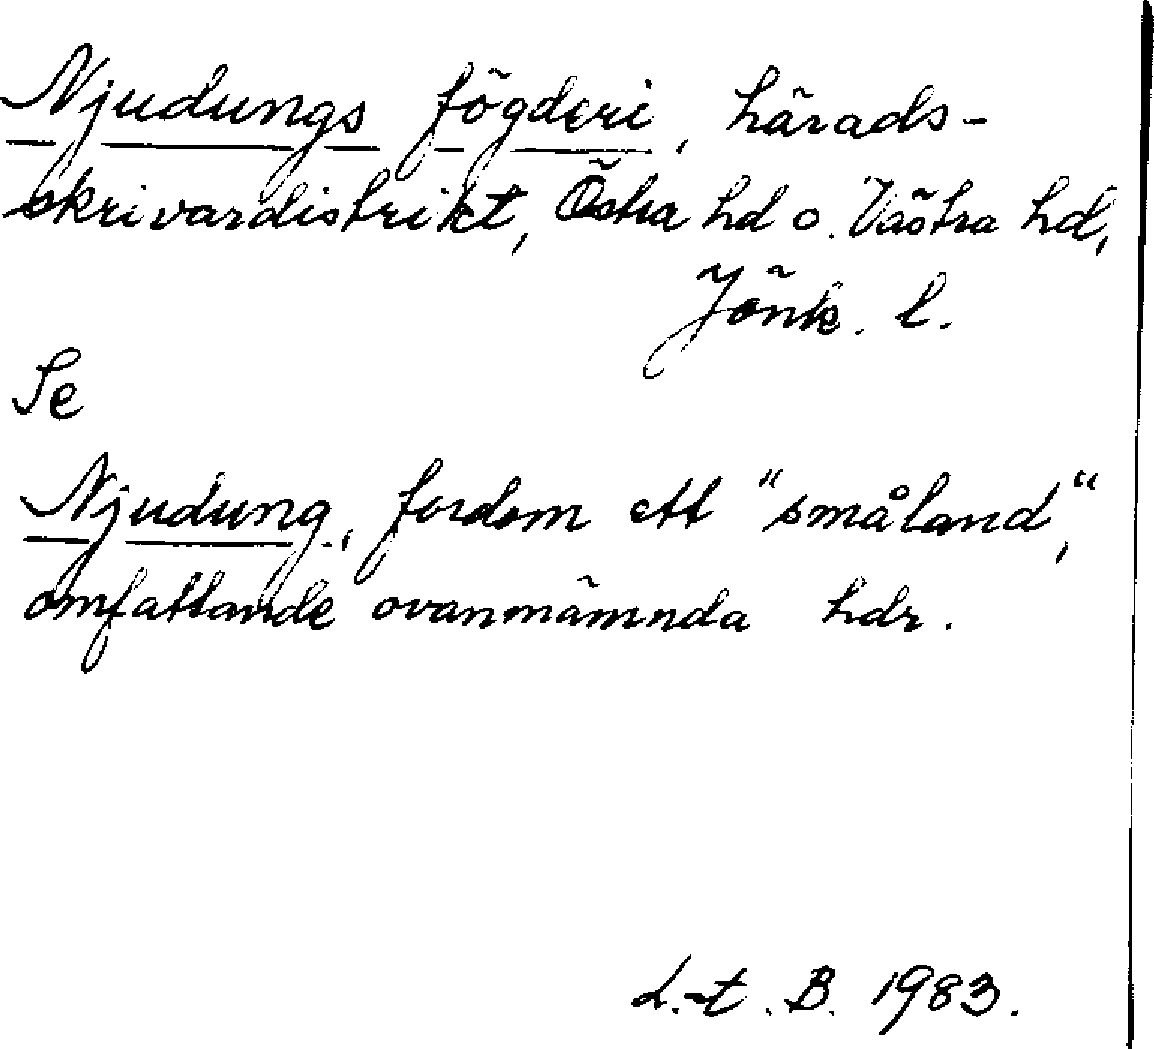 Njudungs fögderi, härads-
skrivardistrikt, Östra hd o. Västra hd,
Jönk. l.
Se
Njudung, fordom ett "småland",
omfattande ovannämnda hdr.
L.-t. B. 1983.